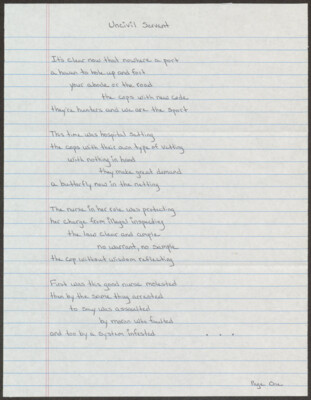 Uncivil Servant
It's clear now that nowhere a port
a haven to hole up and fort
your abode or the road
the cops with new code
they're hunters and we are the sport
This time was hospital setting
the cops with their own type of vetting
with nothing in hand
they make great demand
a butterfly now in the netting
The nurse in her role was protecting
her charge from illegal inspecting
the law clear and ample
no warrant, no sample
the cop without wisdom reflecting
First was this good nurse molested
then by the same thug arrested
to say was assaulted
by moron who faulted
and too by a system infested . . .
Page One